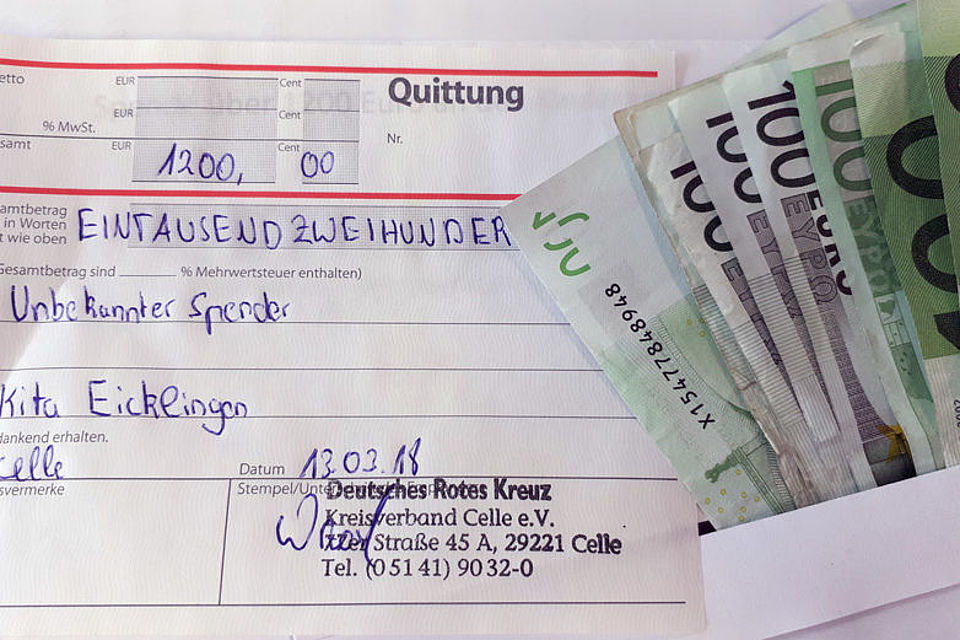 etto EUR Cent Quittung
EUR Cent
% MwSt. Nr.
samt EUR 1200, Cent 00
amtbetrag
in Worten EINTAUSENDZWEIHUNDER
t wie oben
Gesamtbetrag sind % Mehrwertsteuer enthalten)
Unbekannter Spender
Kita Eicklingen
dankend erhalten.
Celle Datum 13.03.18
svermerke Stempel/Unte
Deutsches Rotes Kreuz
Kreisverband Celle e.V.
Straße 45 A, 29221 Celle
Tel. (0 51 41) 90 32-0
X15477848948
100
100
100 EURO
ΕΥΡΩ
100
100